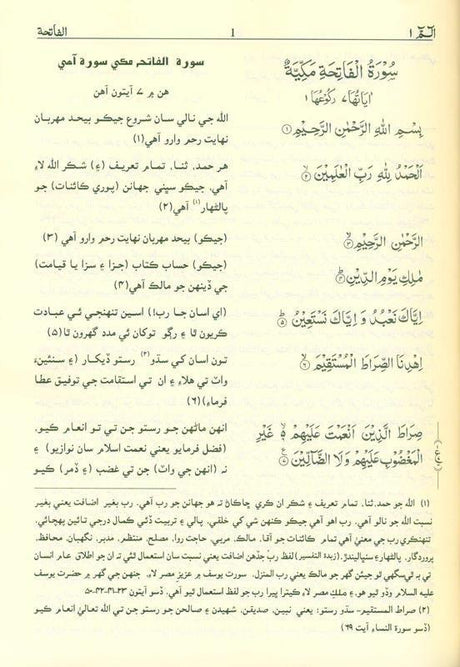 الـمّ ١
1
الفاتحة
سُوْرَةُ الْفَاتِحَةِ مَكِّيَّةٌ
اٰيَاتُهَا ٧ رُكُوْعُهَا ١
بِسْمِ اللّٰهِ الرَّحْمٰنِ الرَّحِيْمِ ۝١
اَلْحَمْدُ لِلّٰهِ رَبِّ الْعٰلَمِيْنَ ۝٢
الرَّحْمٰنِ الرَّحِيْمِ ۝٣
مٰلِكِ يَوْمِ الدِّيْنِ ۝٤
اِيَّاكَ نَعْبُدُ وَ اِيَّاكَ نَسْتَعِيْنُ ۝٥
اِهْدِنَا الصِّرَاطَ الْمُسْتَقِيْمَ ۝٦
صِرَاطَ الَّذِيْنَ اَنْعَمْتَ عَلَيْهِمْ ۙ۬ غَيْرِ
الْمَغْضُوْبِ عَلَيْهِمْ وَلَا الضَّآلِّيْنَ ۝
سورة الفاتحه مڪي سورة آهي
هن ۾ ٧ آيتون آهن
الله جي نالي سان شروع جيڪو بيحد مهربان
نهايت رحم وارو آهي (١)
هر حمد، ثنا، تمام تعريف (۽) شڪر الله لاءِ
آهي. جيڪو سڀني جهانن (پوري ڪائنات) جو
پالڻهار(١) آهي (٢)
(جيڪو) بيحد مهربان نهايت رحم وارو آهي (٣)
(جيڪو) حساب ڪتاب (جزا ۽ سزا يا قيامت)
جي ڏينهن جو مالڪ آهي (۴)
(اي اسان جا رب!) اسين تنهنجي ئي عبادت
ڪريون ٿا ۽ رڳو توکان ئي مدد گهرون ٿا (٥)
تون اسان کي سڌو(٢) رستو ڏيکار (۽ سنئين
واٽ تي هلاءِ ۽ ان تي استقامت جي توفيق عطا
فرماءِ) (٦)
انهن ماڻهن جو رستو جن تي تو انعام ڪيو.
(فضل فرمايو يعني نعمت اسلام سان نوازيو) ۽
نه (انهن جي واٽ) جن تي غضب (۽ ڏمر) ڪيو
(١) الله جو حمد، ثنا، تمام تعريف ۽ شڪر ان ڪري ڇاڪاڻ ته هو جهانن جو رب آهي. رب بغير اضافت يعني بغير
نسبت الله جو نالو آهي. رب اهو آهي جيڪو ڪنهن شي کي خلقي، پالي ۽ تربيت ڏئي ڪمال درجي تائين پهچائي.
تنهنڪري رب جي معنيٰ آهي تمام ڪائنات جو آقا، مالڪ، مربي، حاجت روا، مصلح، منتظم، مدبر، نگهبان، محافظ،
پروردگار، پالڻهار ۽ سنڀاليندڙ. (زبدة التفسير) لفظ رب جڏهن اضافت يعني نسبت سان استعمال ٿئي ته ان جو اطلاق عام انسان
تي به ٿي سگهي ٿو جيئن گهر جو مالڪ يعني رب المنزل. سورت يوسف ۾ عزيز مصر لاءِ، جنهن جي گهر ۾ حضرت يوسف
عليه السلام وڏو ٿيو هو، ۽ ملڪِ مصر لاءِ ڪيترا ڀيرا رب جو لفظ استعمال ٿيو آهي. ڏسو آيتون ٢٣-٣١-٣٢-٥٠
(٢) صراط المستقيم- سڌو رستو: يعني نبين، صديقن، شهيدن ۽ صالحن جو رستو جن تي الله تعاليٰ انعام ڪيو
(ڏسو سورة النساء آيت ٦٩)